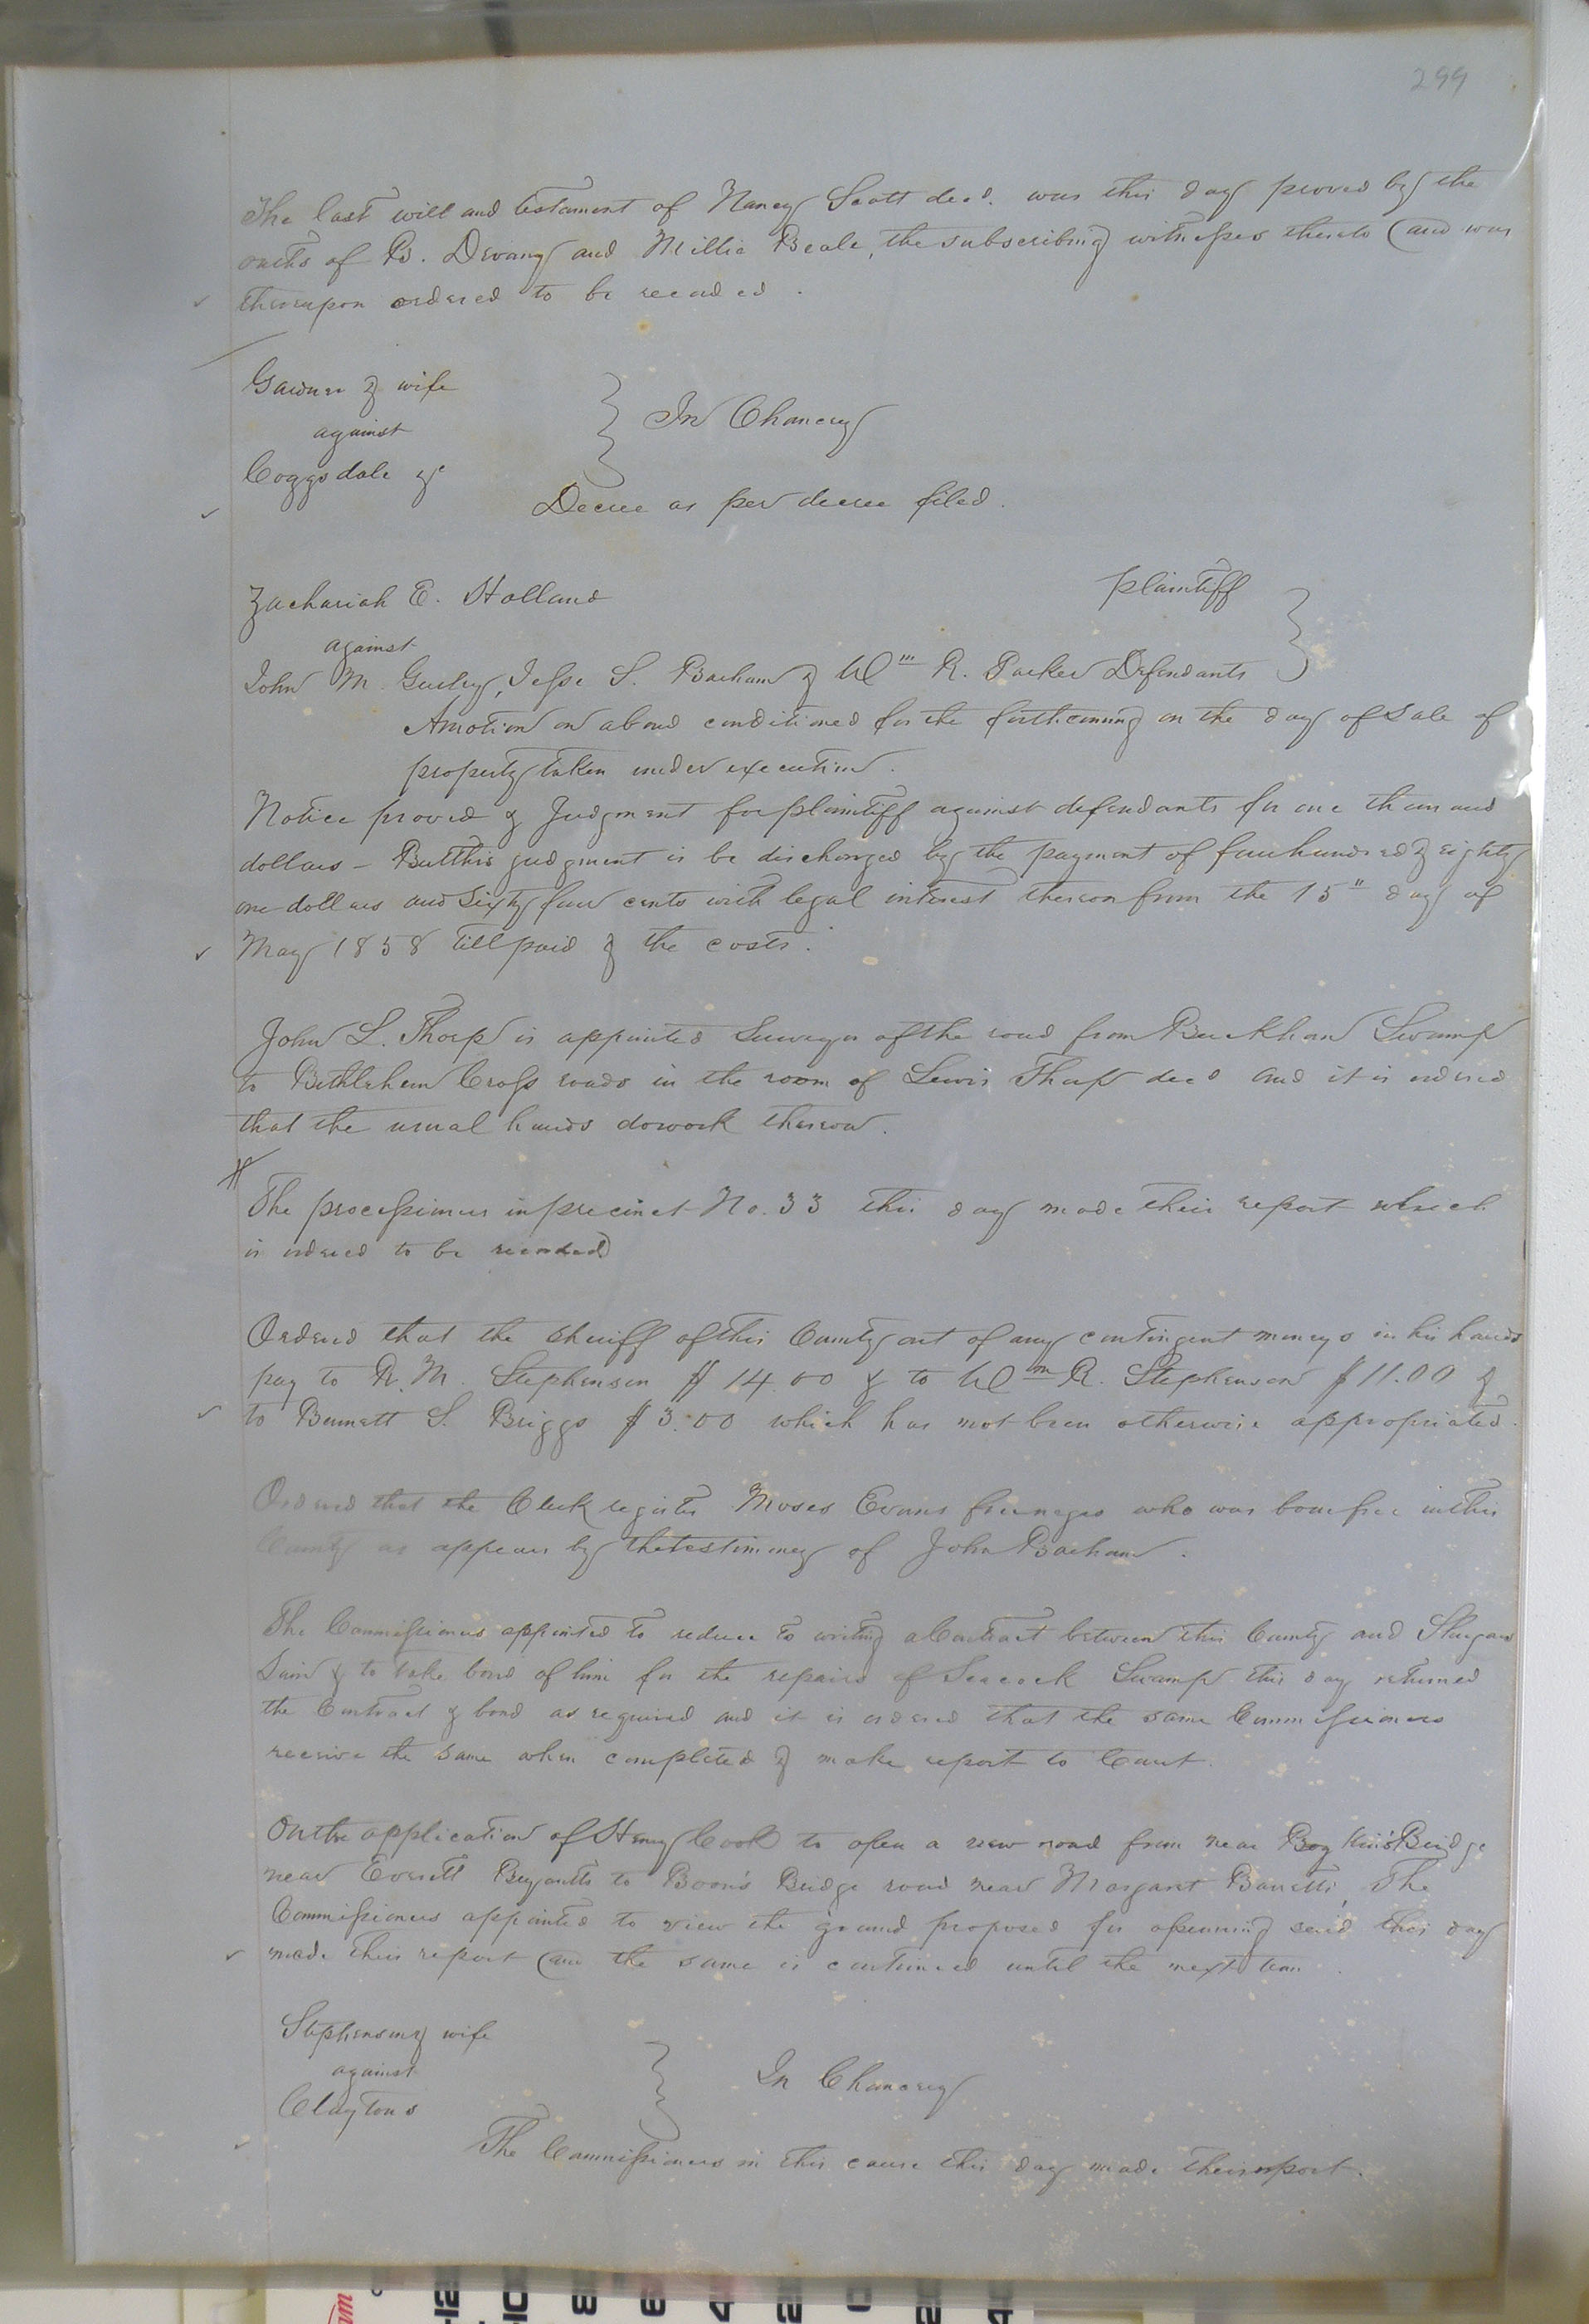 299
The last will and testament of Nancy Scott decd. was this day proved by the
oaths of B. Devany and Millie Beale, the subscribing witnesses thereto and was
thereupon ordered to be recorded.
Gardner & wife
against
In Chancery
Coggsdale &c
Decree as per decree filed.
Zachariah E. Holland plaintiff
against
John M. Gurley, Jesse S. Barham & Wm R. Parker Defendants
A motion on a bond conditioned for the forthcoming on the day of sale of
property taken under execution.
Notice proved & Judgment for plaintiff against defendants for one thousand
dollars – But this judgment is be discharged by the payment of four hundred & eighty
one dollars and sixty four cents with legal interest thereon from the 15" day of
May 1858 till paid & the costs.
John L. Thorp is appointed Surveyor of the road from Buckhorn Swamp
to Bethlehem Cross roads in the room of Lewis Thorp decd and it is ordered
that the usual hands do work thereon.
The processioners in precinct No. 33 this day made their report which
is ordered to be recorded
Ordered that the Sheriff of this County out of any contingent moneys in his hands
pay to R. M. Stephenson $14.00 & to Wm R. Stephenson $11.00 &
to Bennett S. Briggs $3.00 which has not been otherwise appropriated.
Ordered that the Clerk register Moses Evans free negro who was born free in this
County as appears by the testimony of John Barham.
The Commissioners appointed to reduce to writing a Contract between this County and
& to take bond of him for the repairs of Seacock Swamp this day returned
the Contract & bond as required and it is ordered that the same Commissioners
receive the same when completed & make report to Court.
On the application of Henry Cook to open a new road from near Boykin's Bridge
near Everett Bryants to Boon's Bridge road near Margaret Barretts, The
Commissioners appointed to view the ground proposed for opening said this day
made their report and the same is continued until the next term.
Stephenson & wife
against
In Chancery
Claytons
The Commissioners in this cause this day made their report.